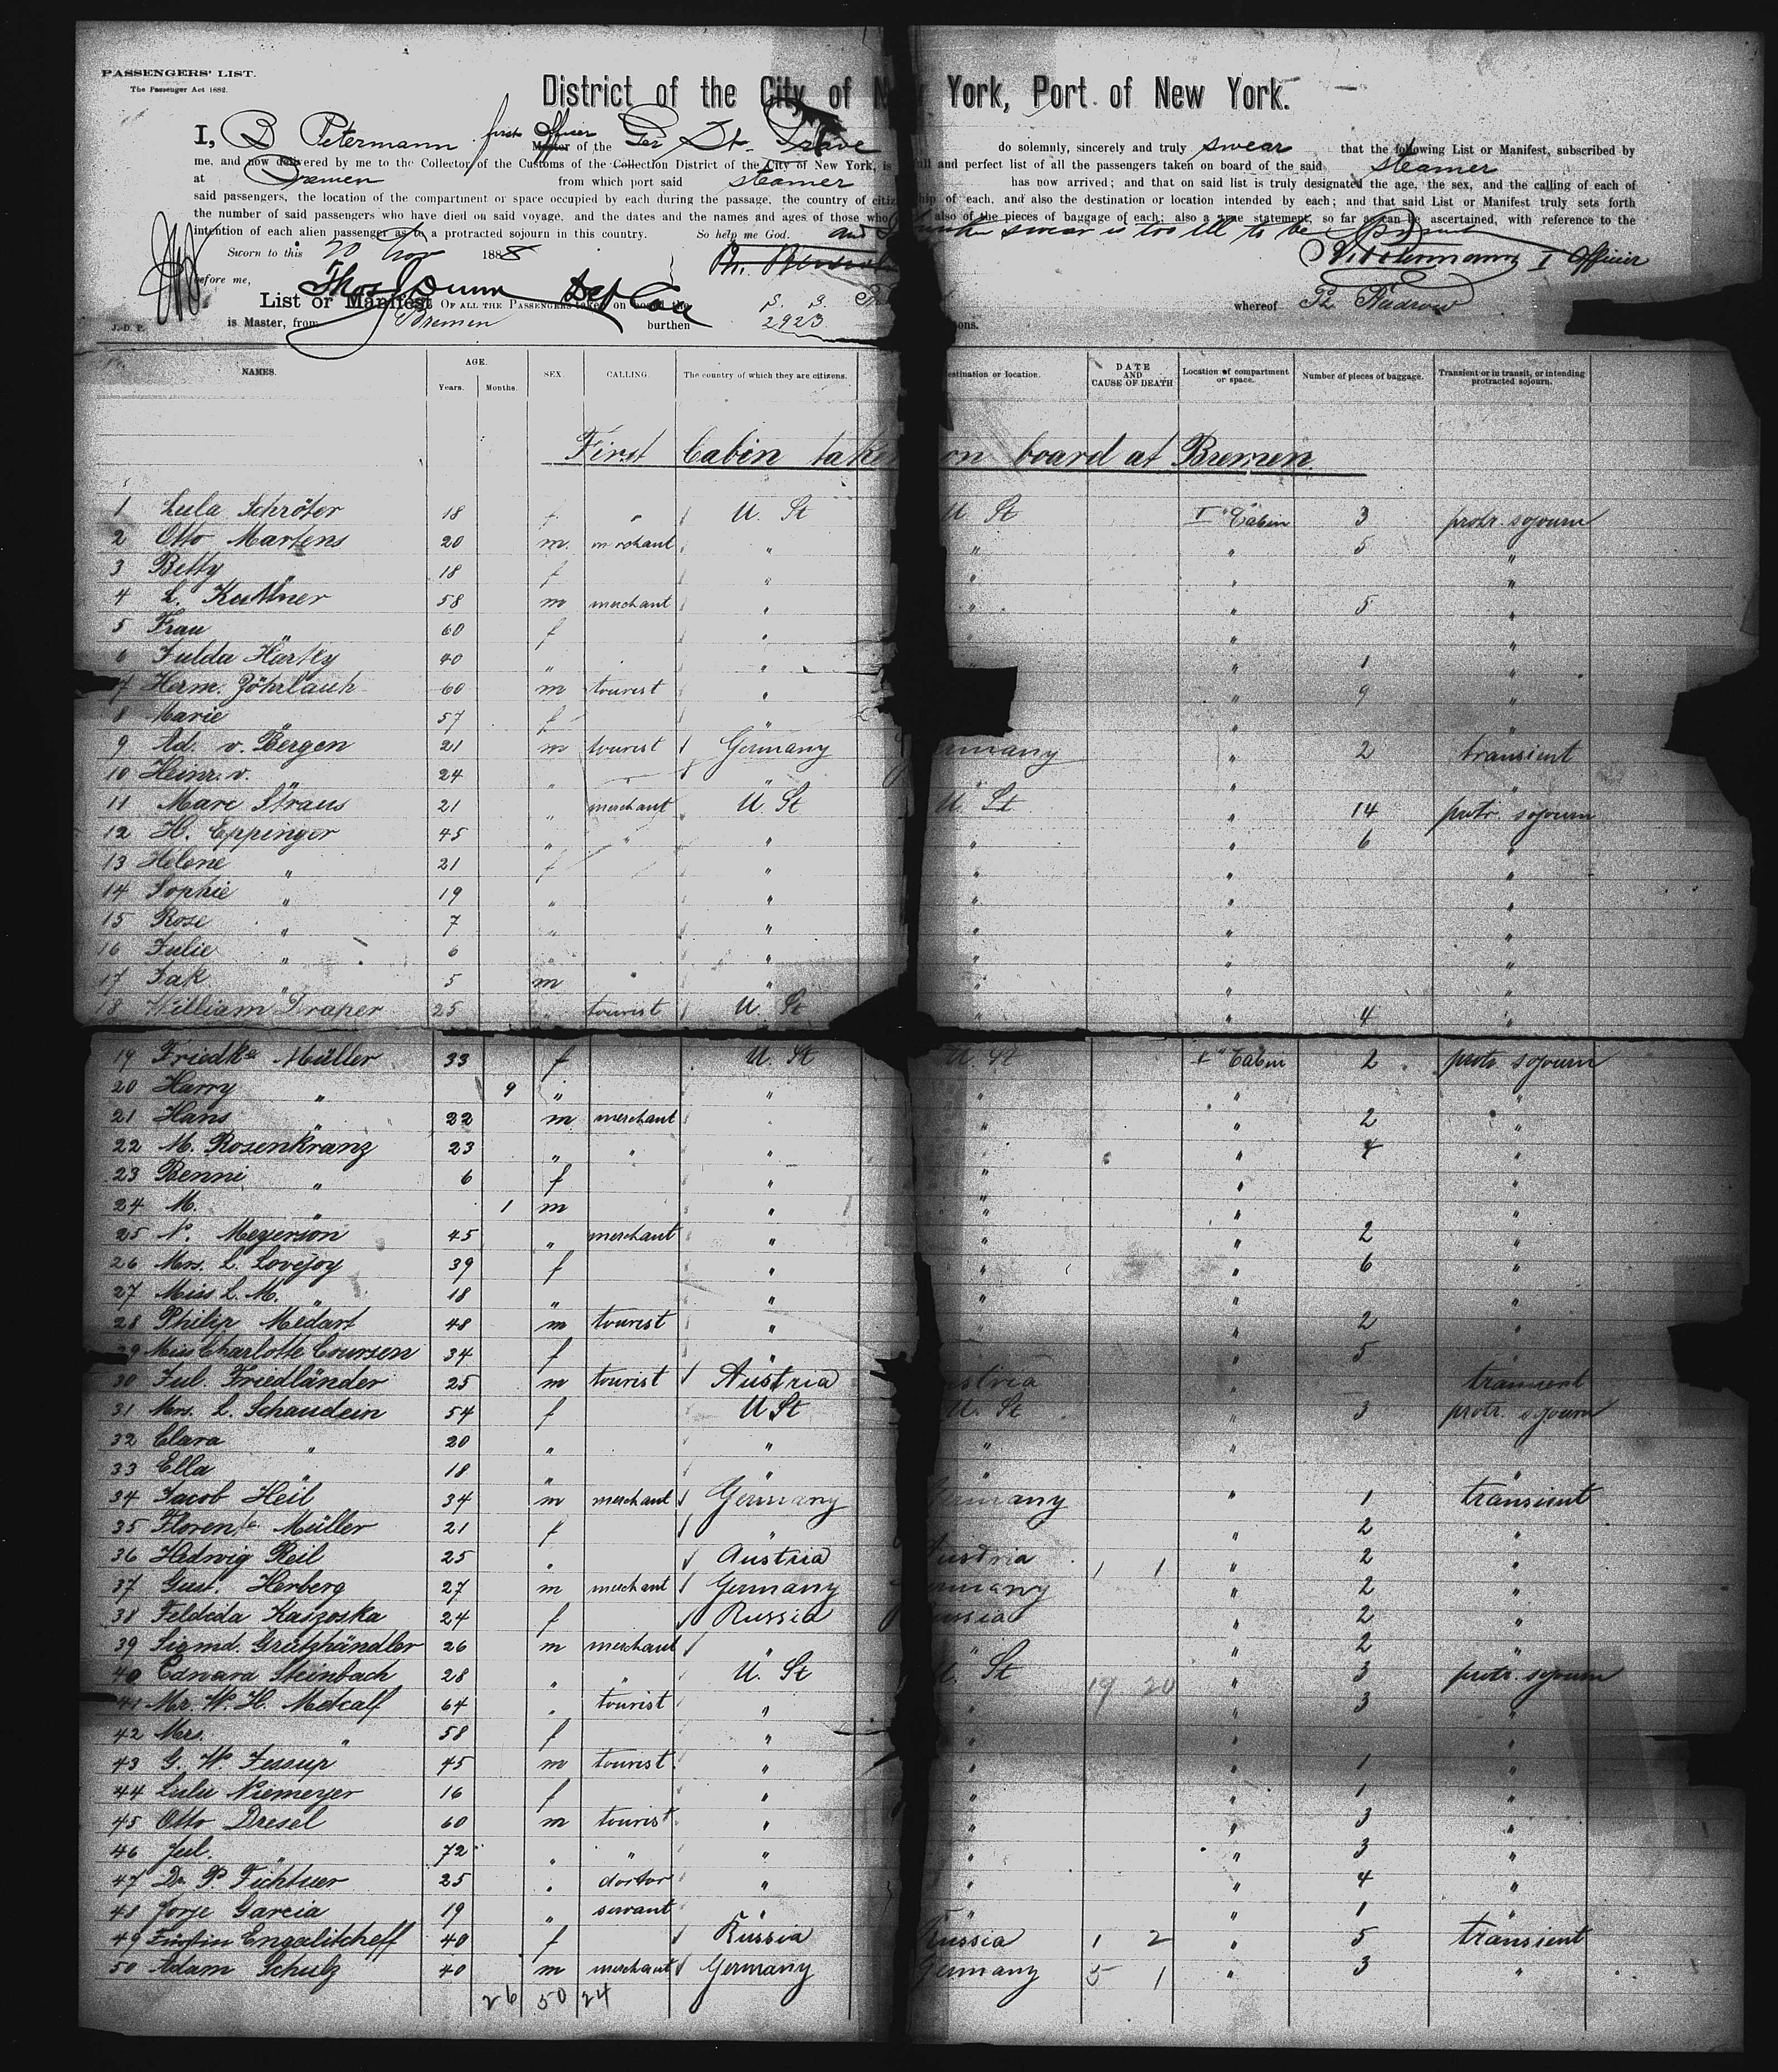 PASSENGERS' LIST.
The Passenger Act 1882.
District of the City of New York, Port of New York.
I, B Petermann first Officer Master of the Ger St. Trave do solemnly, sincerely and truly swear that the following List or Manifest, subscribed by
me, and now delivered by me to the Collector of the Customs of the Collection District of the City of New York, is full and perfect list of all the passengers taken on board of the said steamer
at Bremen from which port said steamer has now arrived; and that on said list is truly designated the age, the sex, and the calling of each of
said passengers, the location of the compartment or space occupied by each during the passage, the country of citizenship of each, and also the destination or location intended by each; and that said List or Manifest truly sets forth
the number of said passengers who have died on said voyage, and the dates and the names and ages of those who also of the pieces of baggage of each; also a true statement, so far as can be ascertained, with reference to the
intention of each alien passenger as to a protracted sojourn in this country. So help me God. and swear is too ill to be
Sworn to this 20 Nov 1888 Petermann I Officer
before me, Thos Dunn Dep Col
List or Manifest OF ALL THE PASSENGERS taken on board the S. S. whereof
J.-D. P. is Master, from Bremen burthen 2923 tons.
NAMES. AGE. Years. Months. SEX. CALLING. The country of which they are citizens. destination or location. DATE AND CAUSE OF DEATH Location of compartment or space. Number of pieces of baggage. Transient or in transit, or intending protracted sojourn.
First Cabin taken on board at Bremen
1 Lula Schröter 18 f " U. St U St I" Cabin 3 protr. sojourn
2 Otto Martens 20 m. merchant " " " 5 "
3 Betty " 18 f " " " "
4 L. Kuttner 58 m merchant " " " 5 "
5 Frau " 60 f " " " "
6 Julda Härtky 40 " " " " 1 "
7 Herm. Zöhrlauk 60 m tourist " " 9 "
8 Marie " 57 f " " "
9 Ad. v. Bergen 21 m tourist Germany Germany " 2 transient
10 Heinr. v. " 24 " " " "
11 Marc Straus 21 " merchant U St U. St " 14 protr. sojourn
12 H. Eppinger 45 " " " " " 6 "
13 Helene " 21 f " " " "
14 Sophie " 19 " " " " "
15 Rose " 7 " " " " "
16 Julie " 6 " " " " "
17 Jak " 5 m " " " " "
18 William Draper 25 " tourist U. St " " 4 "
19 Friedke Müller 33 f U. St U. St I" Cabin 2 protr sojourn
20 Harry " 9 " " " " "
21 Hans " 22 m merchant " " " 2 "
22 M. Rosenkranz 23 " " " " " 4 "
23 Benni " 6 f " " " "
24 M. " 1 m " " " "
25 N. Meyerson 45 " merchant " " " 2 "
26 Mrs. L. Lovejoy 39 f " " " 6 "
27 Miss L. M. " 18 " " " " "
28 Philip Medart 48 m tourist " " " 2 "
29 Miss Charlotte Coursen 34 f " " " 5 "
30 Jul. Friedländer 25 m tourist Austria Austria " transient
31 Mrs. L. Schandein 54 f U St U. St " 3 protr. sojourn
32 Clara " 20 " " " " "
33 Ella " 18 " " " "
34 Jacob Heil 34 m merchant Germany Germany " 1 transient
35 Florente Müller 21 f " " 2 "
36 Hedwig Reil 25 " Austria Austria 1 1 " 2 "
37 Gust. Herberg 27 m merchant Germany Germany " 2 "
38 Feldeda Kaszoska 24 f Russia Russia " 2 "
39 Sigmd. Grützhändler 26 m merchant " " " 2 "
40 Edward Steinbach 28 " " U. St U. St 19 20 " 3 protr. sojourn
41 Mr. W. H. Metcalf 64 " tourist " " " 3 "
42 Mrs. " 58 f " " " "
43 G. W. Jessup 45 m tourist " " " 1 "
44 Lulu Niemeyer 16 f " " " 1 "
45 Otto Dresel 60 m tourist " " " 3 "
46 Jul. " 72 " " " " " 3 "
47 Dr. P. Fichtner 25 " doctor " " " 4 "
48 Jorje Garcia 19 " servant " " " 1 "
49 Fürstin Engalitcheff 40 f Russia Russia 1 2 " 5 transient
50 Adam Schulz 40 m merchant Germany Germany 5 1 " 3 "
26 50 24